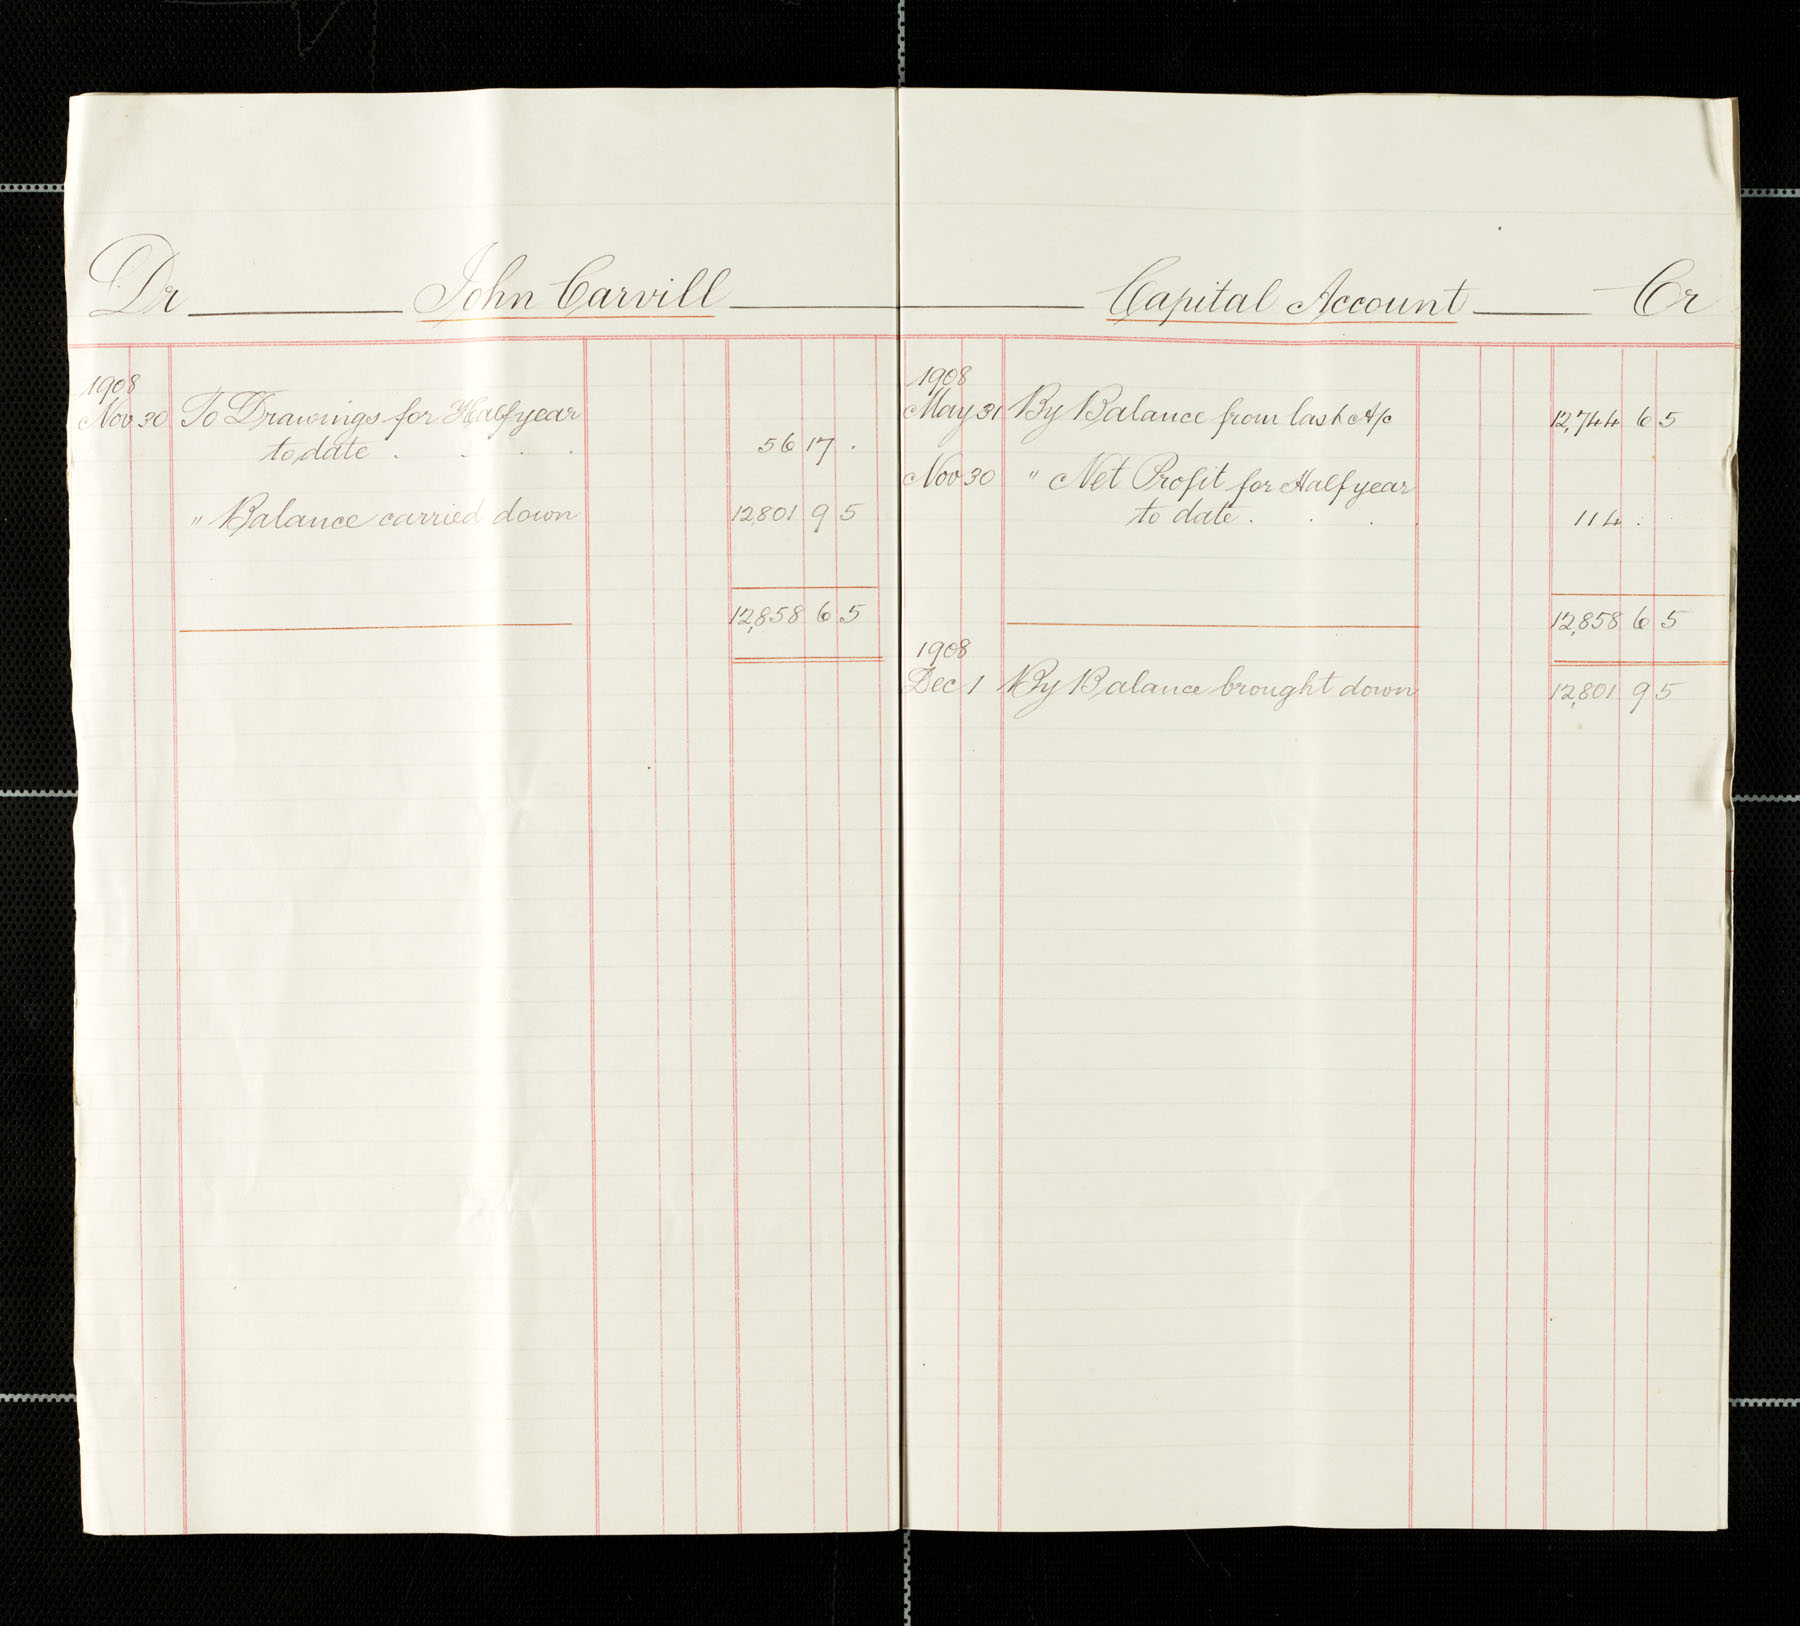 Dr John Carvill Capital Account Cr
1908
Nov 30 To Drawings for Half year
to date . . . . 56 17 .
" Balance carried down 12,801 9 5
12,858 6 5
1908
May 31 By Balance from last A/c 12,744 6 5
Nov 30 " Net Profit for Half year
to date . . . . 114 . .
12,858 6 5
1908
Dec 1 By Balance brought down 12,801 9 5